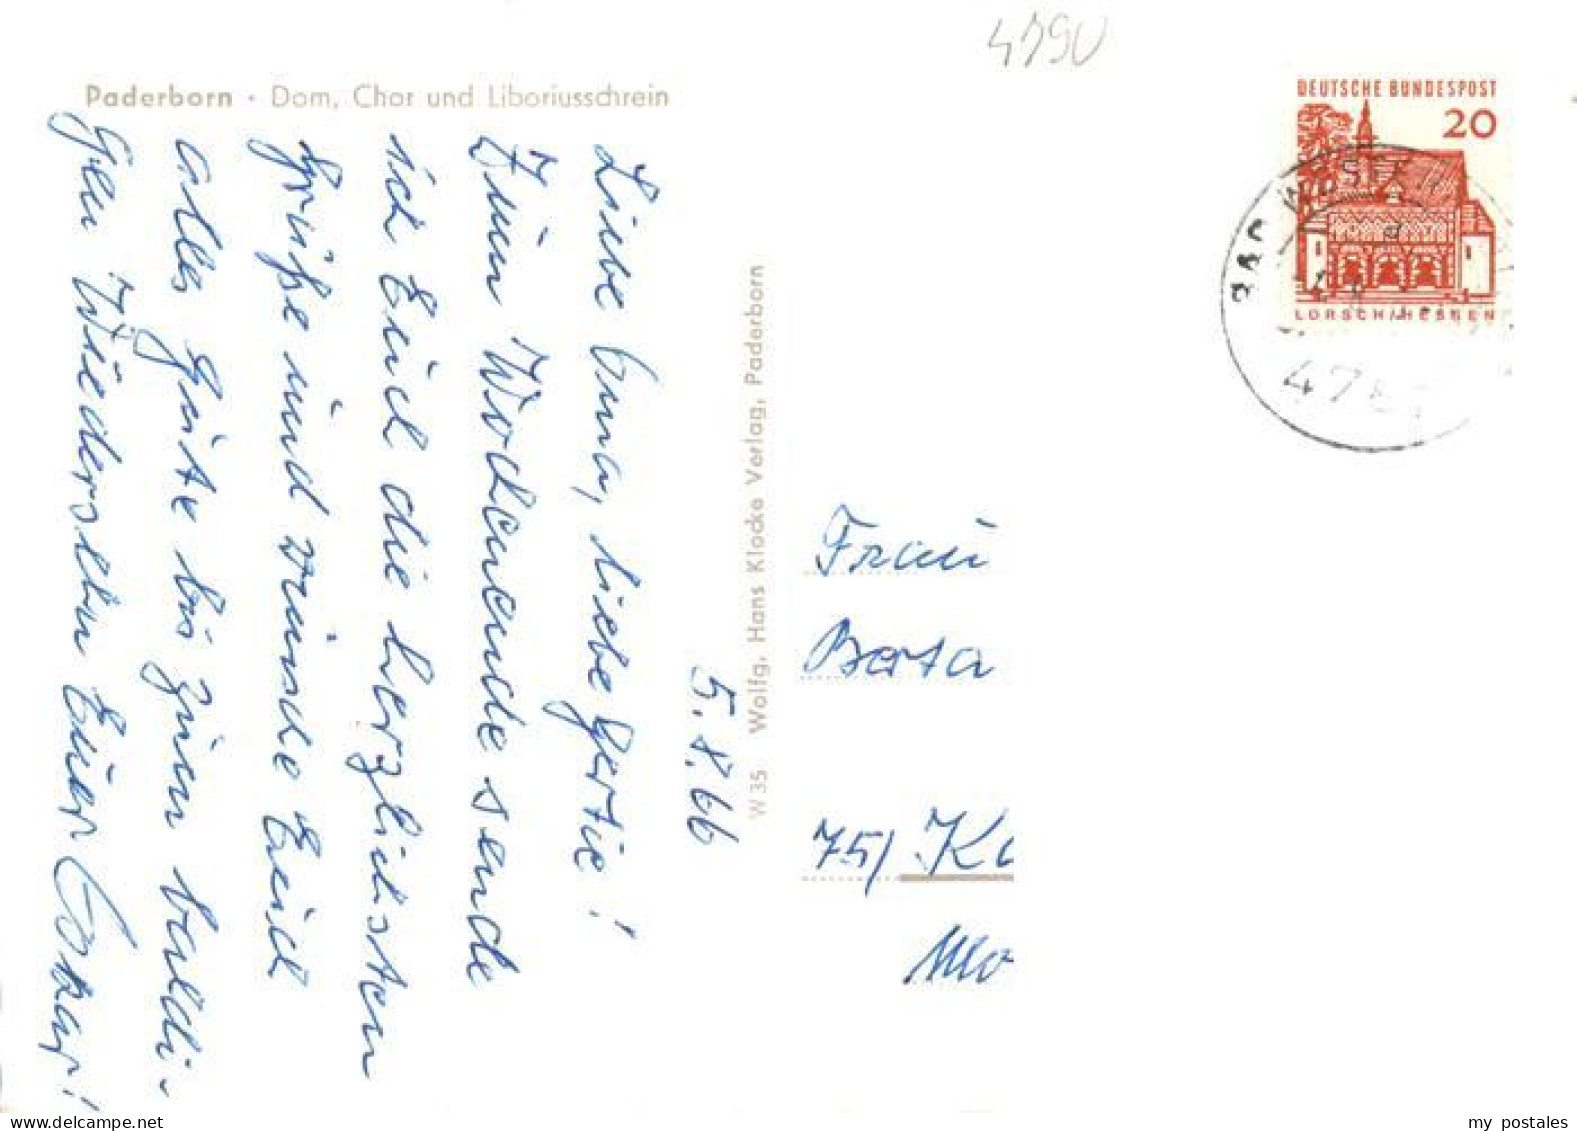 4790
Paderborn · Dom, Chor und Liboriusschrein
5.8.66
Liebe Oma, liebe Gertie!
Zum Wochenende sende
ich Euch die herzlichsten
Grüße und wünsche Euch
alles Gute bis zum baldi-
gen Wiedersehen Euer Oskar!
W 35 Wolfg. Hans Klocke Verlag, Paderborn
DEUTSCHE BUNDESPOST
20
LORSCH/HESSEN
BAD WESTERN
478
Frau
Berta
75/ Ka
Mo
my postales